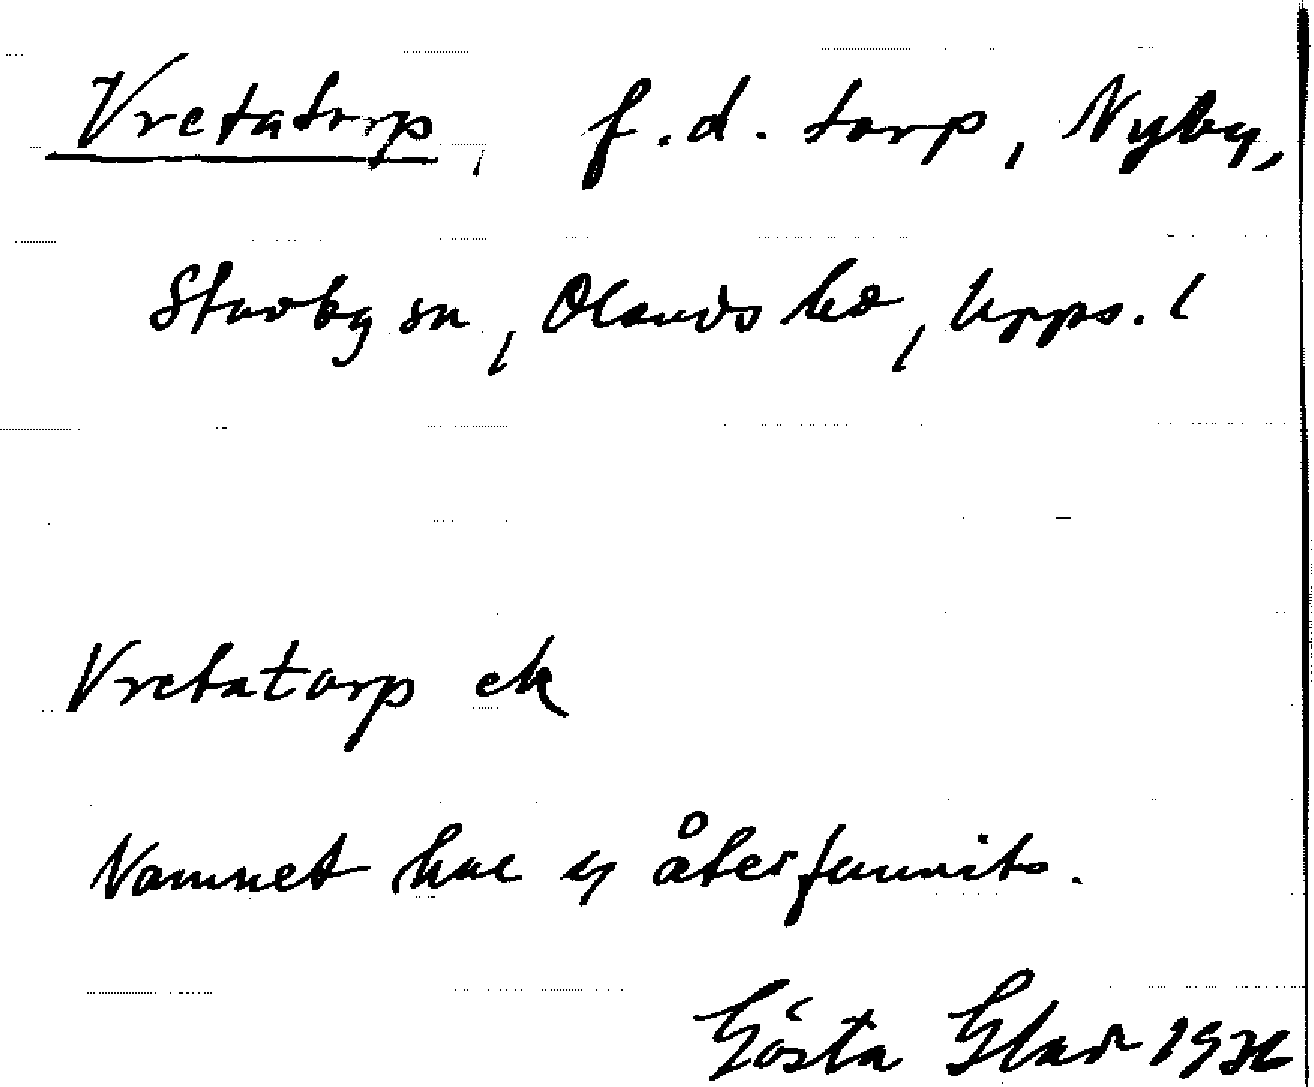 Vretatorp, f.d. torp, Nyby,
Stavby sn, Olands hd, Upps. l
Vretatorp ek
Namnet har ej återfunnits.
Gösta Glad 1936